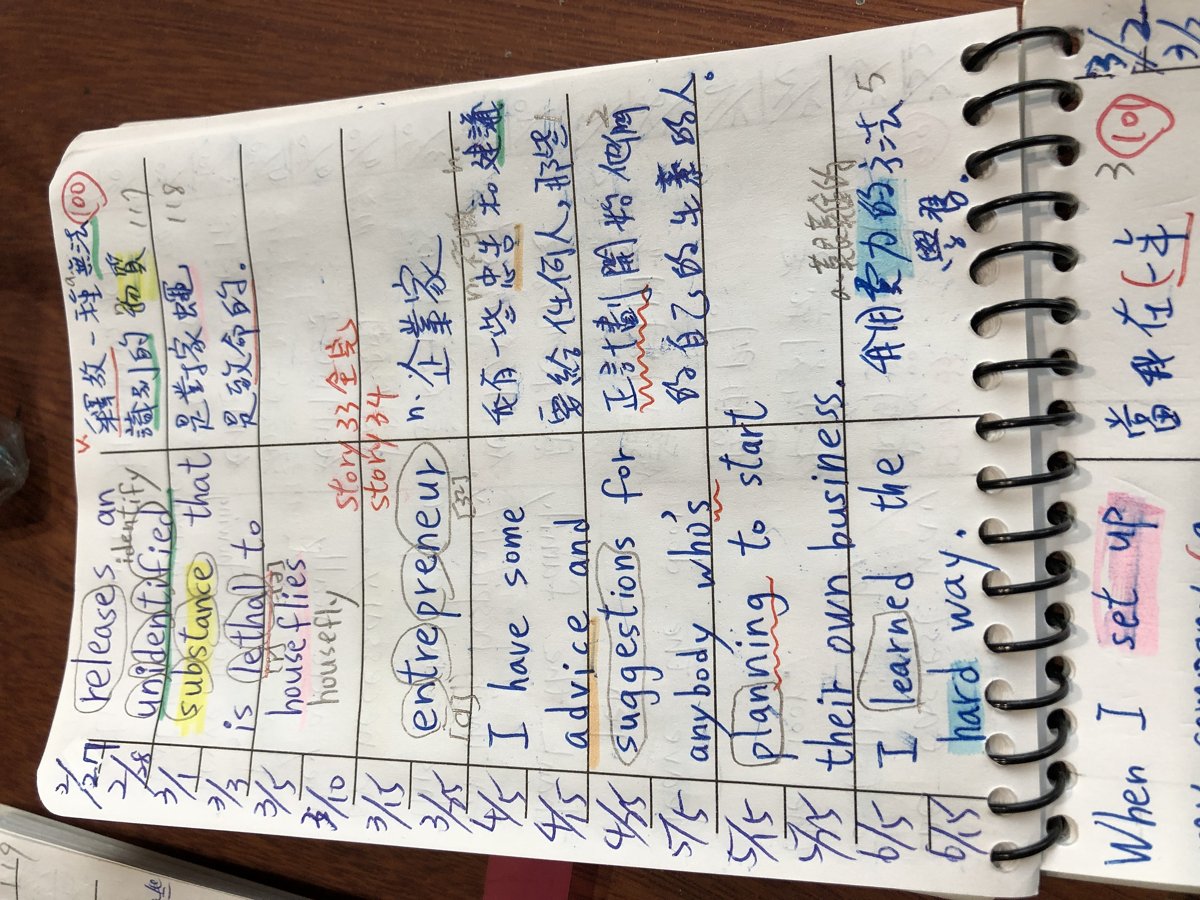 2/27
2/28
3/1
3/3
3/5
3/10
3/15
3/25
4/5
4/15
4/25
5/5
5/15
5/25
6/5
6/15
releases an
identify
unidentified
substance that
is lethal to
[ə]
houseflies
housefly
story 33 全完
story 34
entrepreneur
[ɑ]
[ɜ]
I have some
advice and
suggestions for
anybody who's
planning to start
their own business.
I learned the
hard way.
v.
100
釋放一種無法
識別的物質 117
118
是對家蠅
是致命的.
n. 企業家
我有一些忠告和建議
要給任何人,那些
正計劃開始他們
的自己的生意的人。
a. 艱難的
我用費力的方法 5
學習.
When I set up
當我在(一年
3
101
3/2